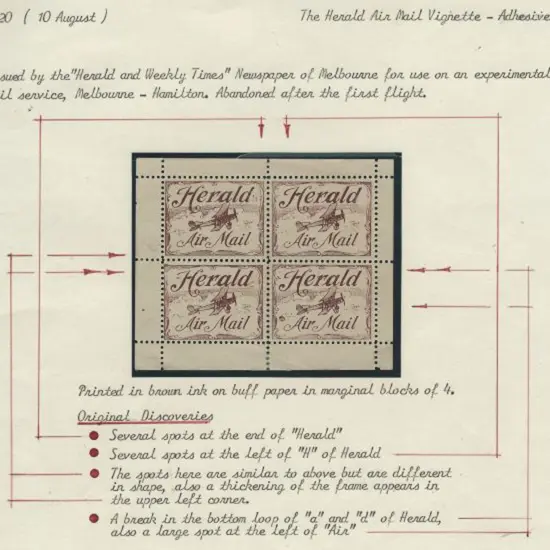 20 ( 10 August )
The Herald Air Mail Vignette - Adhesive
ssued by the "Herald and Weekly Times" Newspaper of Melbourne for use on an experimental
il service, Melbourne - Hamilton. Abandoned after the first flight.
Herald
Air Mail
Herald
Air Mail
Herald
Air Mail
Herald
Air Mail
Printed in brown ink on buff paper in marginal blocks of 4.
Original Discoveries
Several spots at the end of "Herald"
Several spots at the left of "H" of Herald
The spots here are similar to above but are different
in shape, also a thickening of the frame appears in
the upper left corner.
A break in the bottom loop of "a" and "d" of Herald,
also a large spot at the left of "Air"